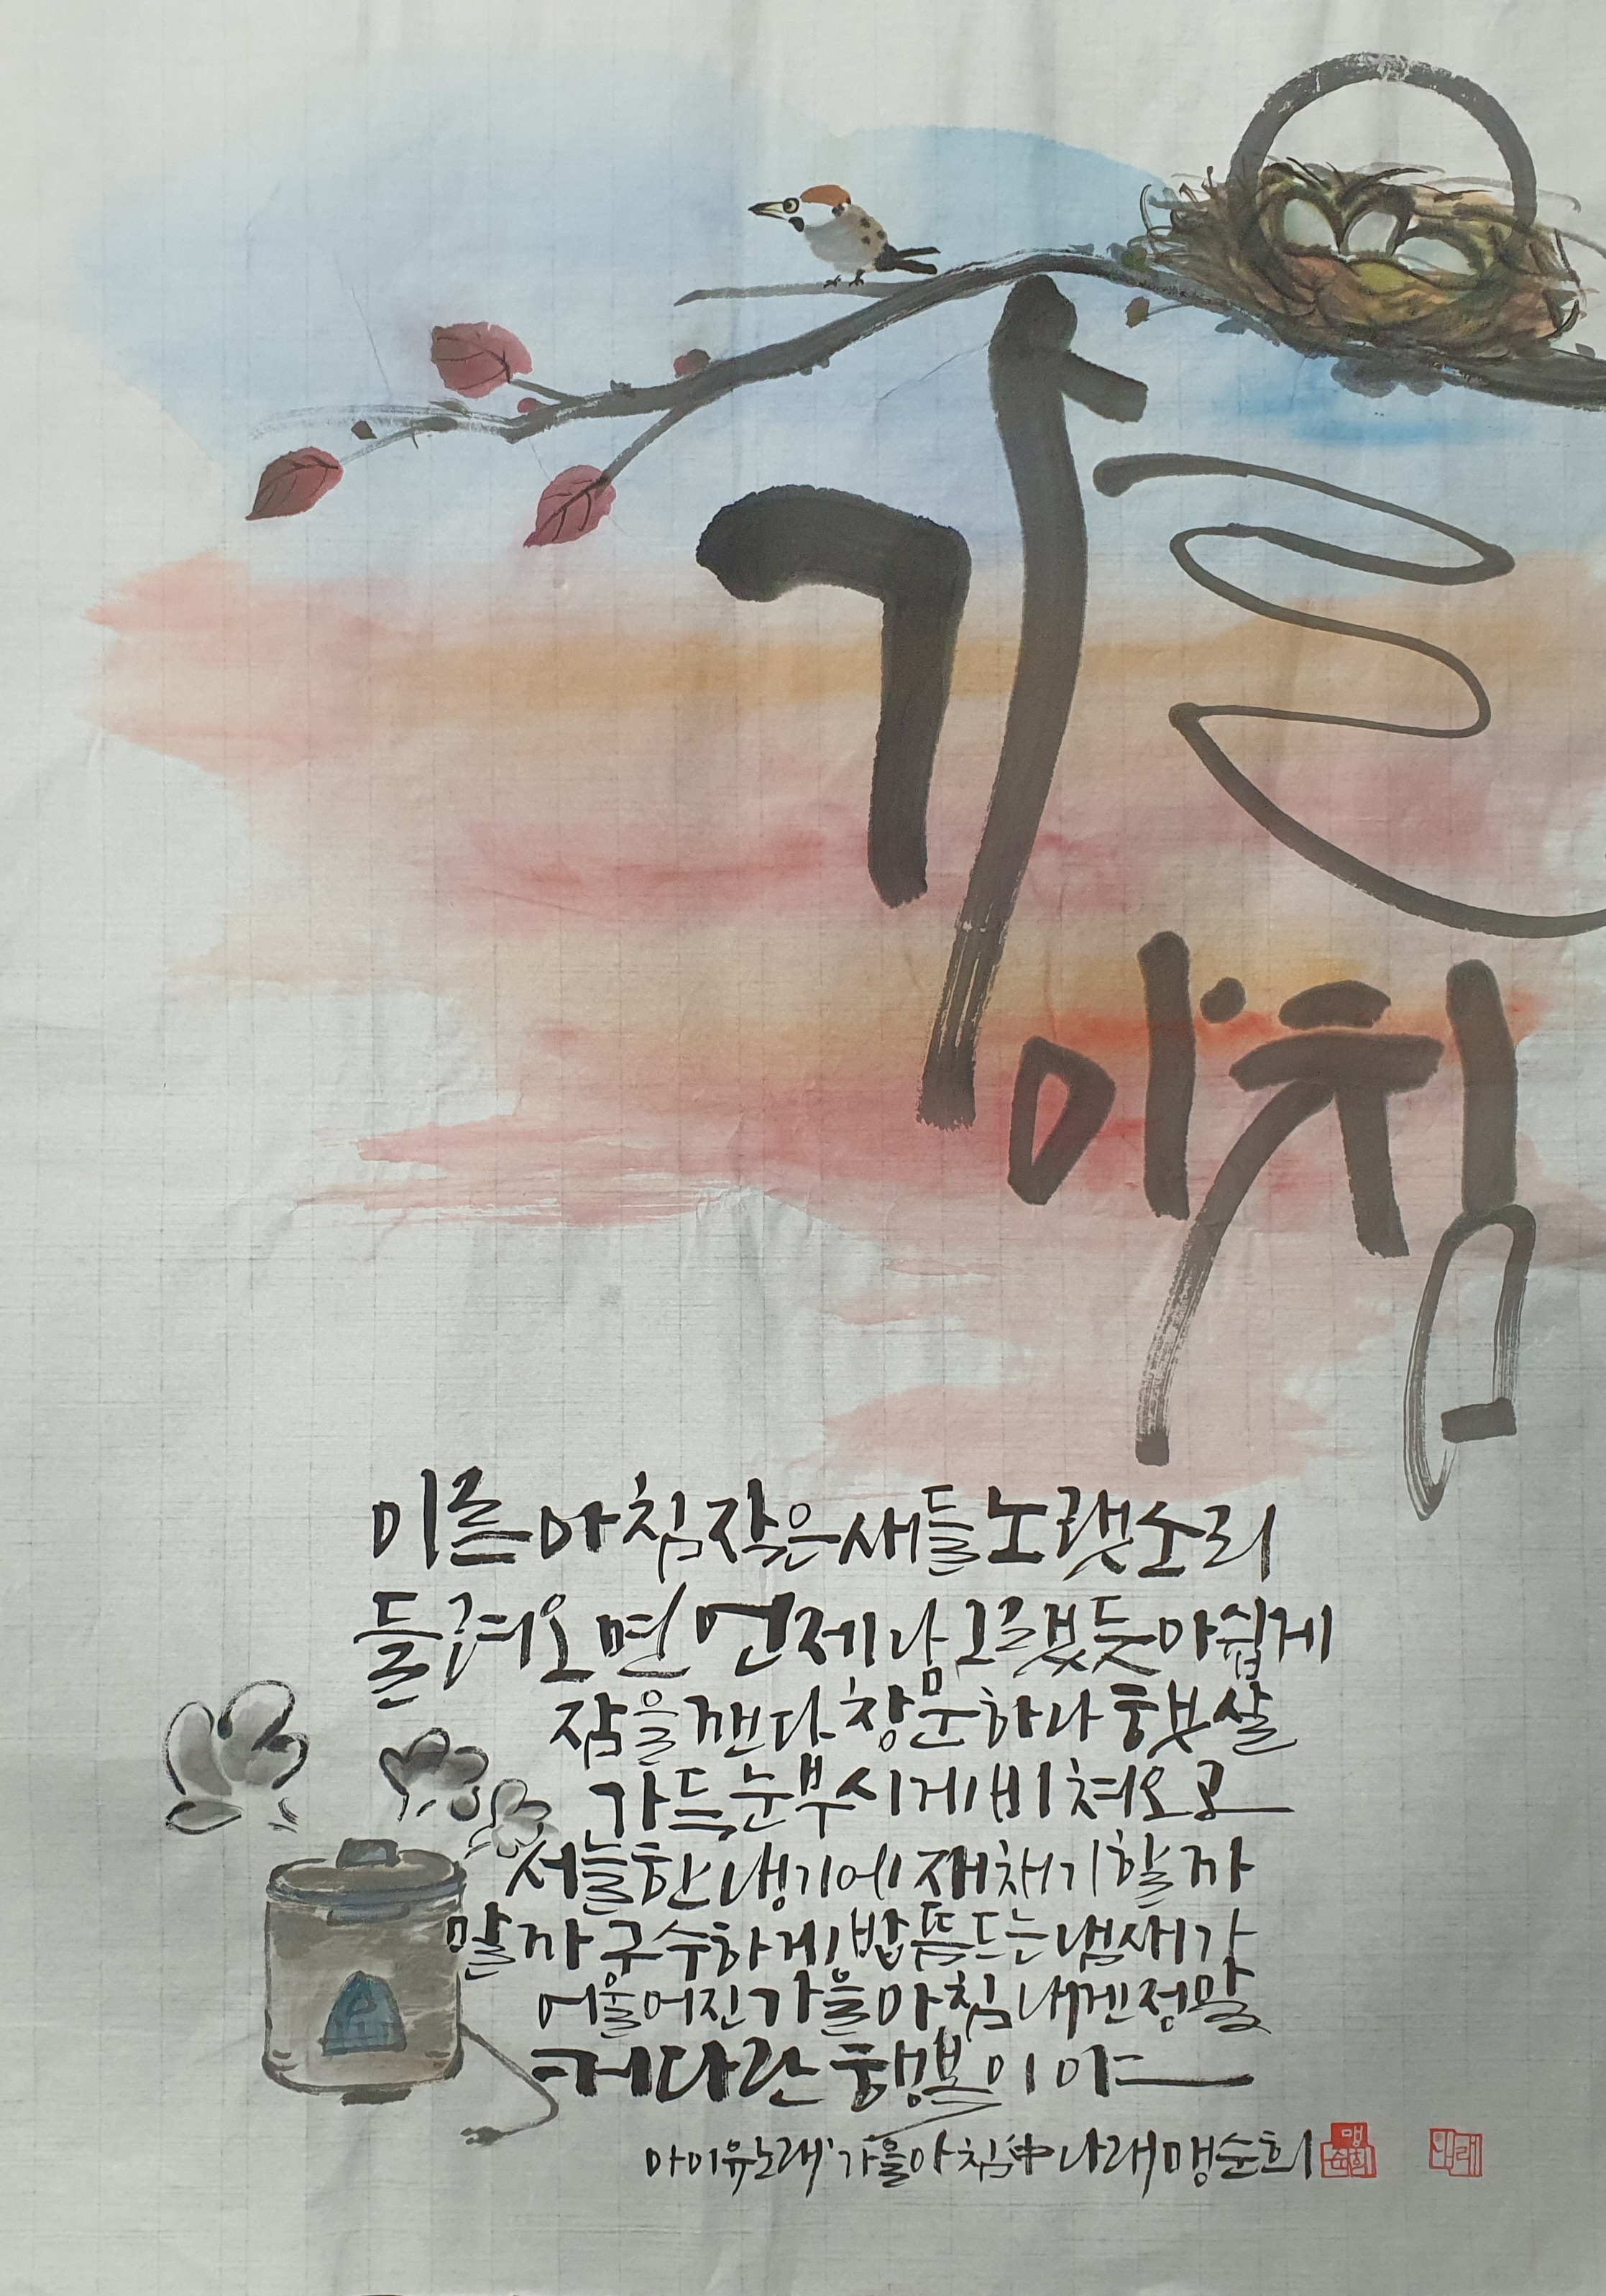 가을
아침
이른 아침 작은 새들 노랫소리
들려오면 언제나 그랬듯 아쉽게
잠을 깬다 창문 하나 햇살
가득 눈부시게 비쳐오고
서늘한 냉기에 재채기할까
말까 구수하게 밥 뜸드는 냄새가
어울어진 가을아침 내겐 정말
커다란 행복이야
아이유 노래 '가을아침' 中 나래 맹순희
맹순희
나래